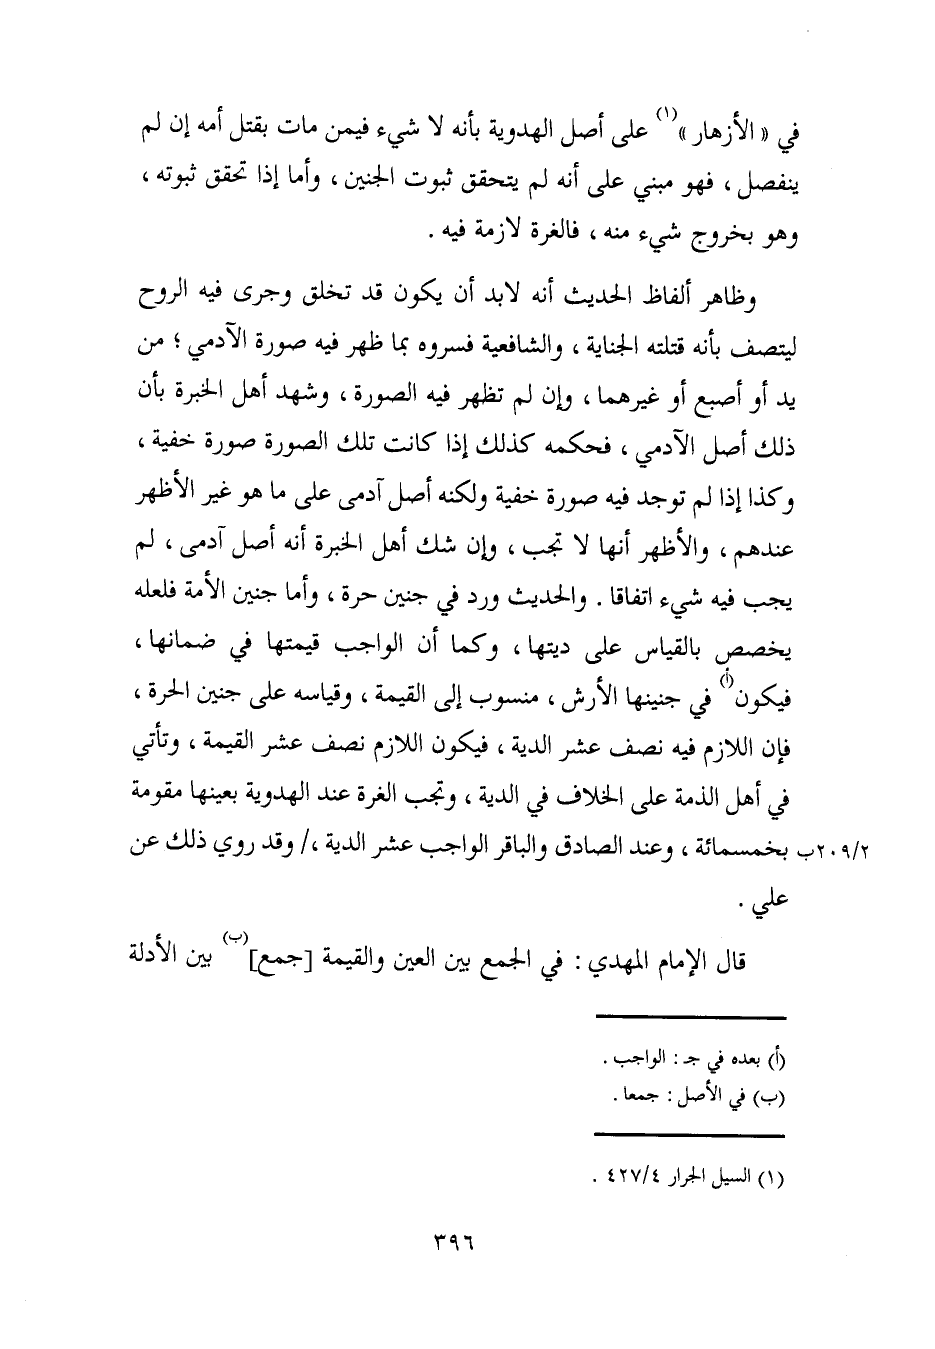 في « الأزهار »(١) على أصل الهدوية بأنه لا شيء فيمن مات بقتل أمه إن لم
ينفصل ، فهو مبني على أنه لم يتحقق ثبوت الجنين ، وأما إذا تحقق ثبوته ،
وهو بخروج شيء منه ، فالغرة لازمة فيه .
وظاهر ألفاظ الحديث أنه لابد أن يكون قد تخلق وجرى فيه الروح
ليتصف بأنه قتلته الجناية ، والشافعية فسروه بما ظهر فيه صورة الآدمي ؛ من
يد أو أصبع أو غيرهما ، وإن لم تظهر فيه الصورة ، وشهد أهل الخبرة بأن
ذلك أصل الآدمي ، فحكمه كذلك إذا كانت تلك الصورة صورة خفية ،
وكذا إذا لم توجد فيه صورة خفية ولكنه أصل آدمى على ما هو غير الأظهر
عندهم ، والأظهر أنها لا تجب ، وإن شك أهل الخبرة أنه أصل آدمى ، لم
يجب فيه شيء اتفاقا . والحديث ورد في جنين حرة ، وأما جنين الأمة فلعله
يخصص بالقياس على ديتها ، وكما أن الواجب قيمتها في ضمانها ،
فيكون(أ) في جنينها الأرش ، منسوب إلى القيمة ، وقياسه على جنين الحرة ،
فإن اللازم فيه نصف عشر الدية ، فيكون اللازم نصف عشر القيمة ، وتأتي
في أهل الذمة على الخلاف في الدية ، وتجب الغرة عند الهدوية بعينها مقومة
٢٠٩/٢ب بخمسمائة ، وعند الصادق والباقر الواجب عشر الدية ،/ وقد روي ذلك عن
علي .
قال الإمام المهدي : في الجمع بين العين والقيمة [جمع](ب) بين الأدلة
(أ) بعده في جـ : الواجب .
(ب) في الأصل : جمعا .
(١) السيل الجرار ٤٢٧/٤ .
٣٩٦